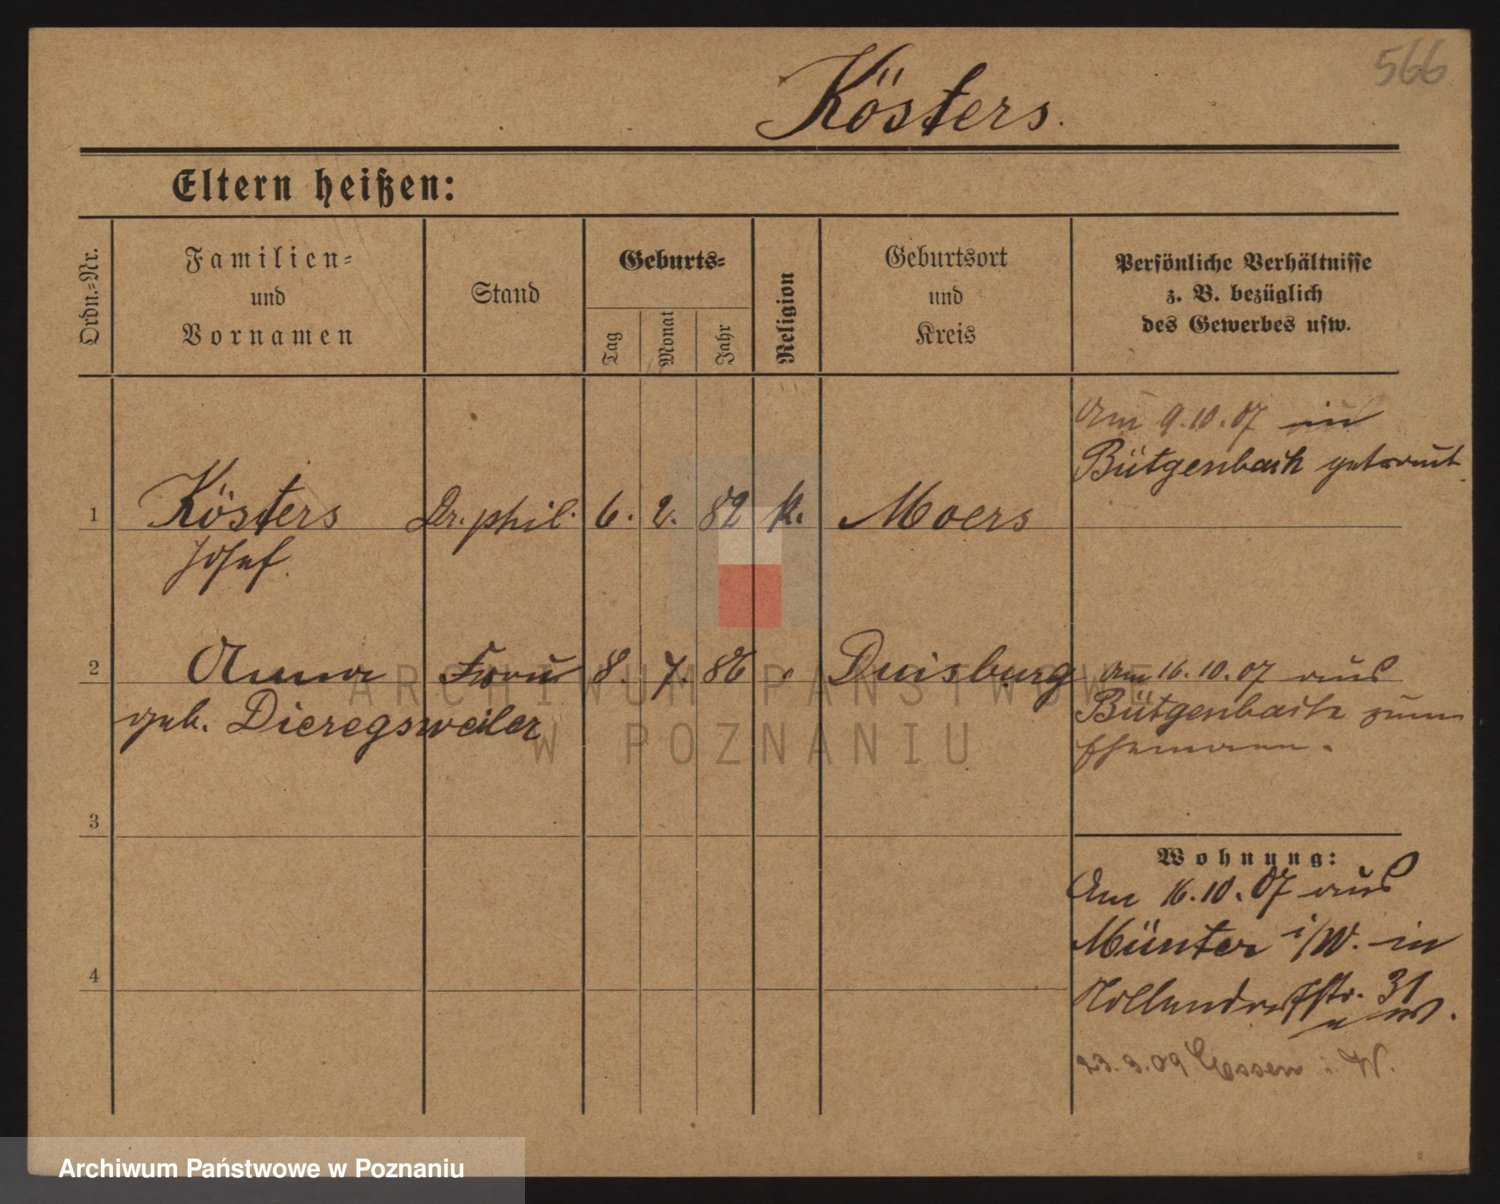 566
Kösters.
Eltern heißen:
Ordn.-Nr.
Familien-
und
Vornamen
Stand
Geburts-
Tag
Monat
Jahr
Religion
Geburtsort
und
Kreis
Persönliche Verhältnisse
z. B. bezüglich
des Gewerbes usw.
Am 9.10.07 in
Bütgenbach getraut.
1 Kösters Dr. phil. 6. 2. 82 k. Moers
Josef.
2 Anna Frau 8. 7. 86 " Duisburg Am 16.10.07 aus
geb. Dieregsweiler Bütgenbach zum
Ehemann.
3
Wohnung:
Am 16.10.07 aus
Münster i/W. in
31
4
23.3.09 Essen i. W.
ARCHIWUM PAŃSTWOWE
W POZNANIU
Archiwum Państwowe w Poznaniu